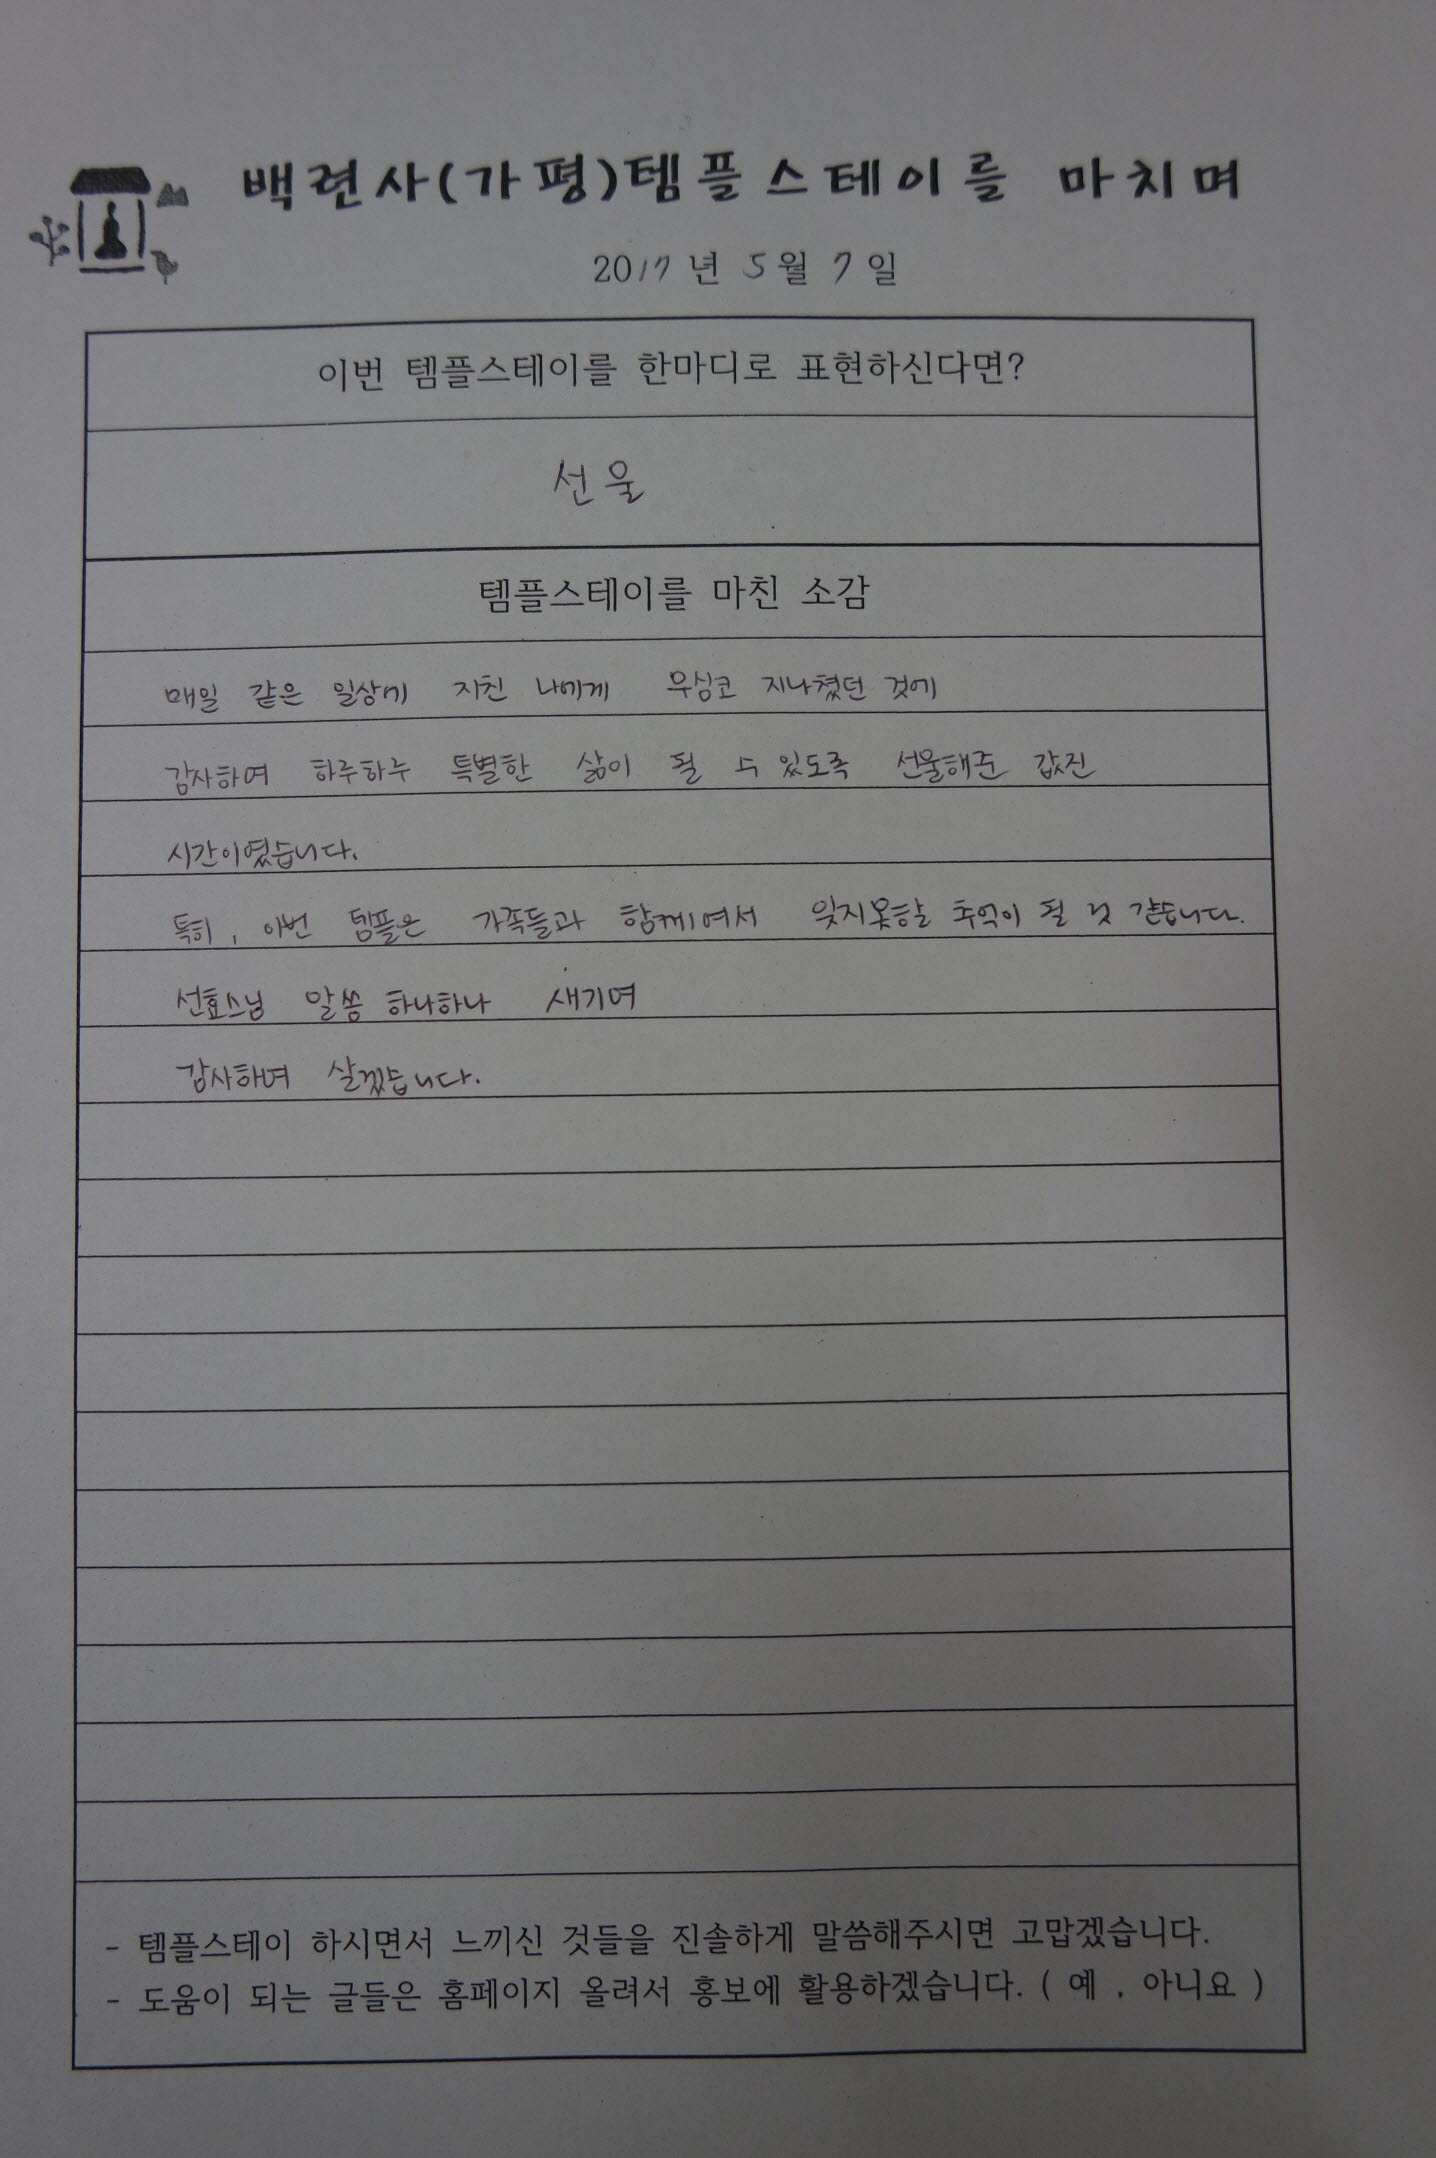 백련사(가평)템플스테이를 마치며
2017년 5월 7일
이번 템플스테이를 한마디로 표현하신다면?
선물
템플스테이를 마친 소감
매일 같은 일상에 지친 나에게 무심코 지나쳤던 것에
감사하며 하루하루 특별한 삶이 될 수 있도록 선물해준 값진
시간이였습니다.
특히, 이번 템플은 가족들과 함께여서 잊지못할 추억이 될 것 같습니다.
선효스님 말씀 하나하나 새기며
감사하며 살겠습니다.
- 템플스테이 하시면서 느끼신 것들을 진솔하게 말씀해주시면 고맙겠습니다.
- 도움이 되는 글들은 홈페이지 올려서 홍보에 활용하겠습니다. ( 예 , 아니요 )